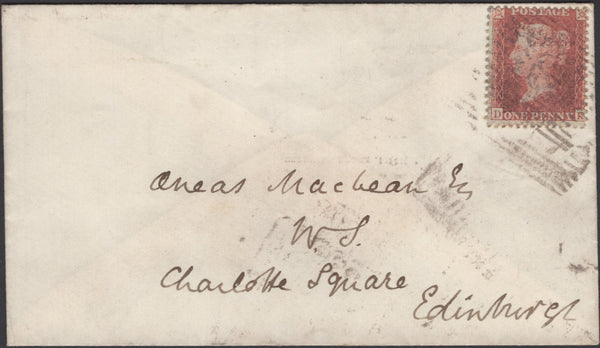 POSTAGE
D ONE PENNY
Oneas Macbean Esq
W. S.
Charlotte Square
Edinburgh